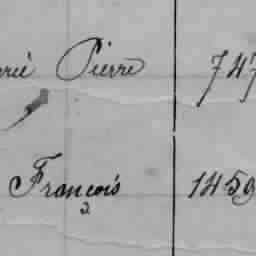 Pierre 747
François 1459
2